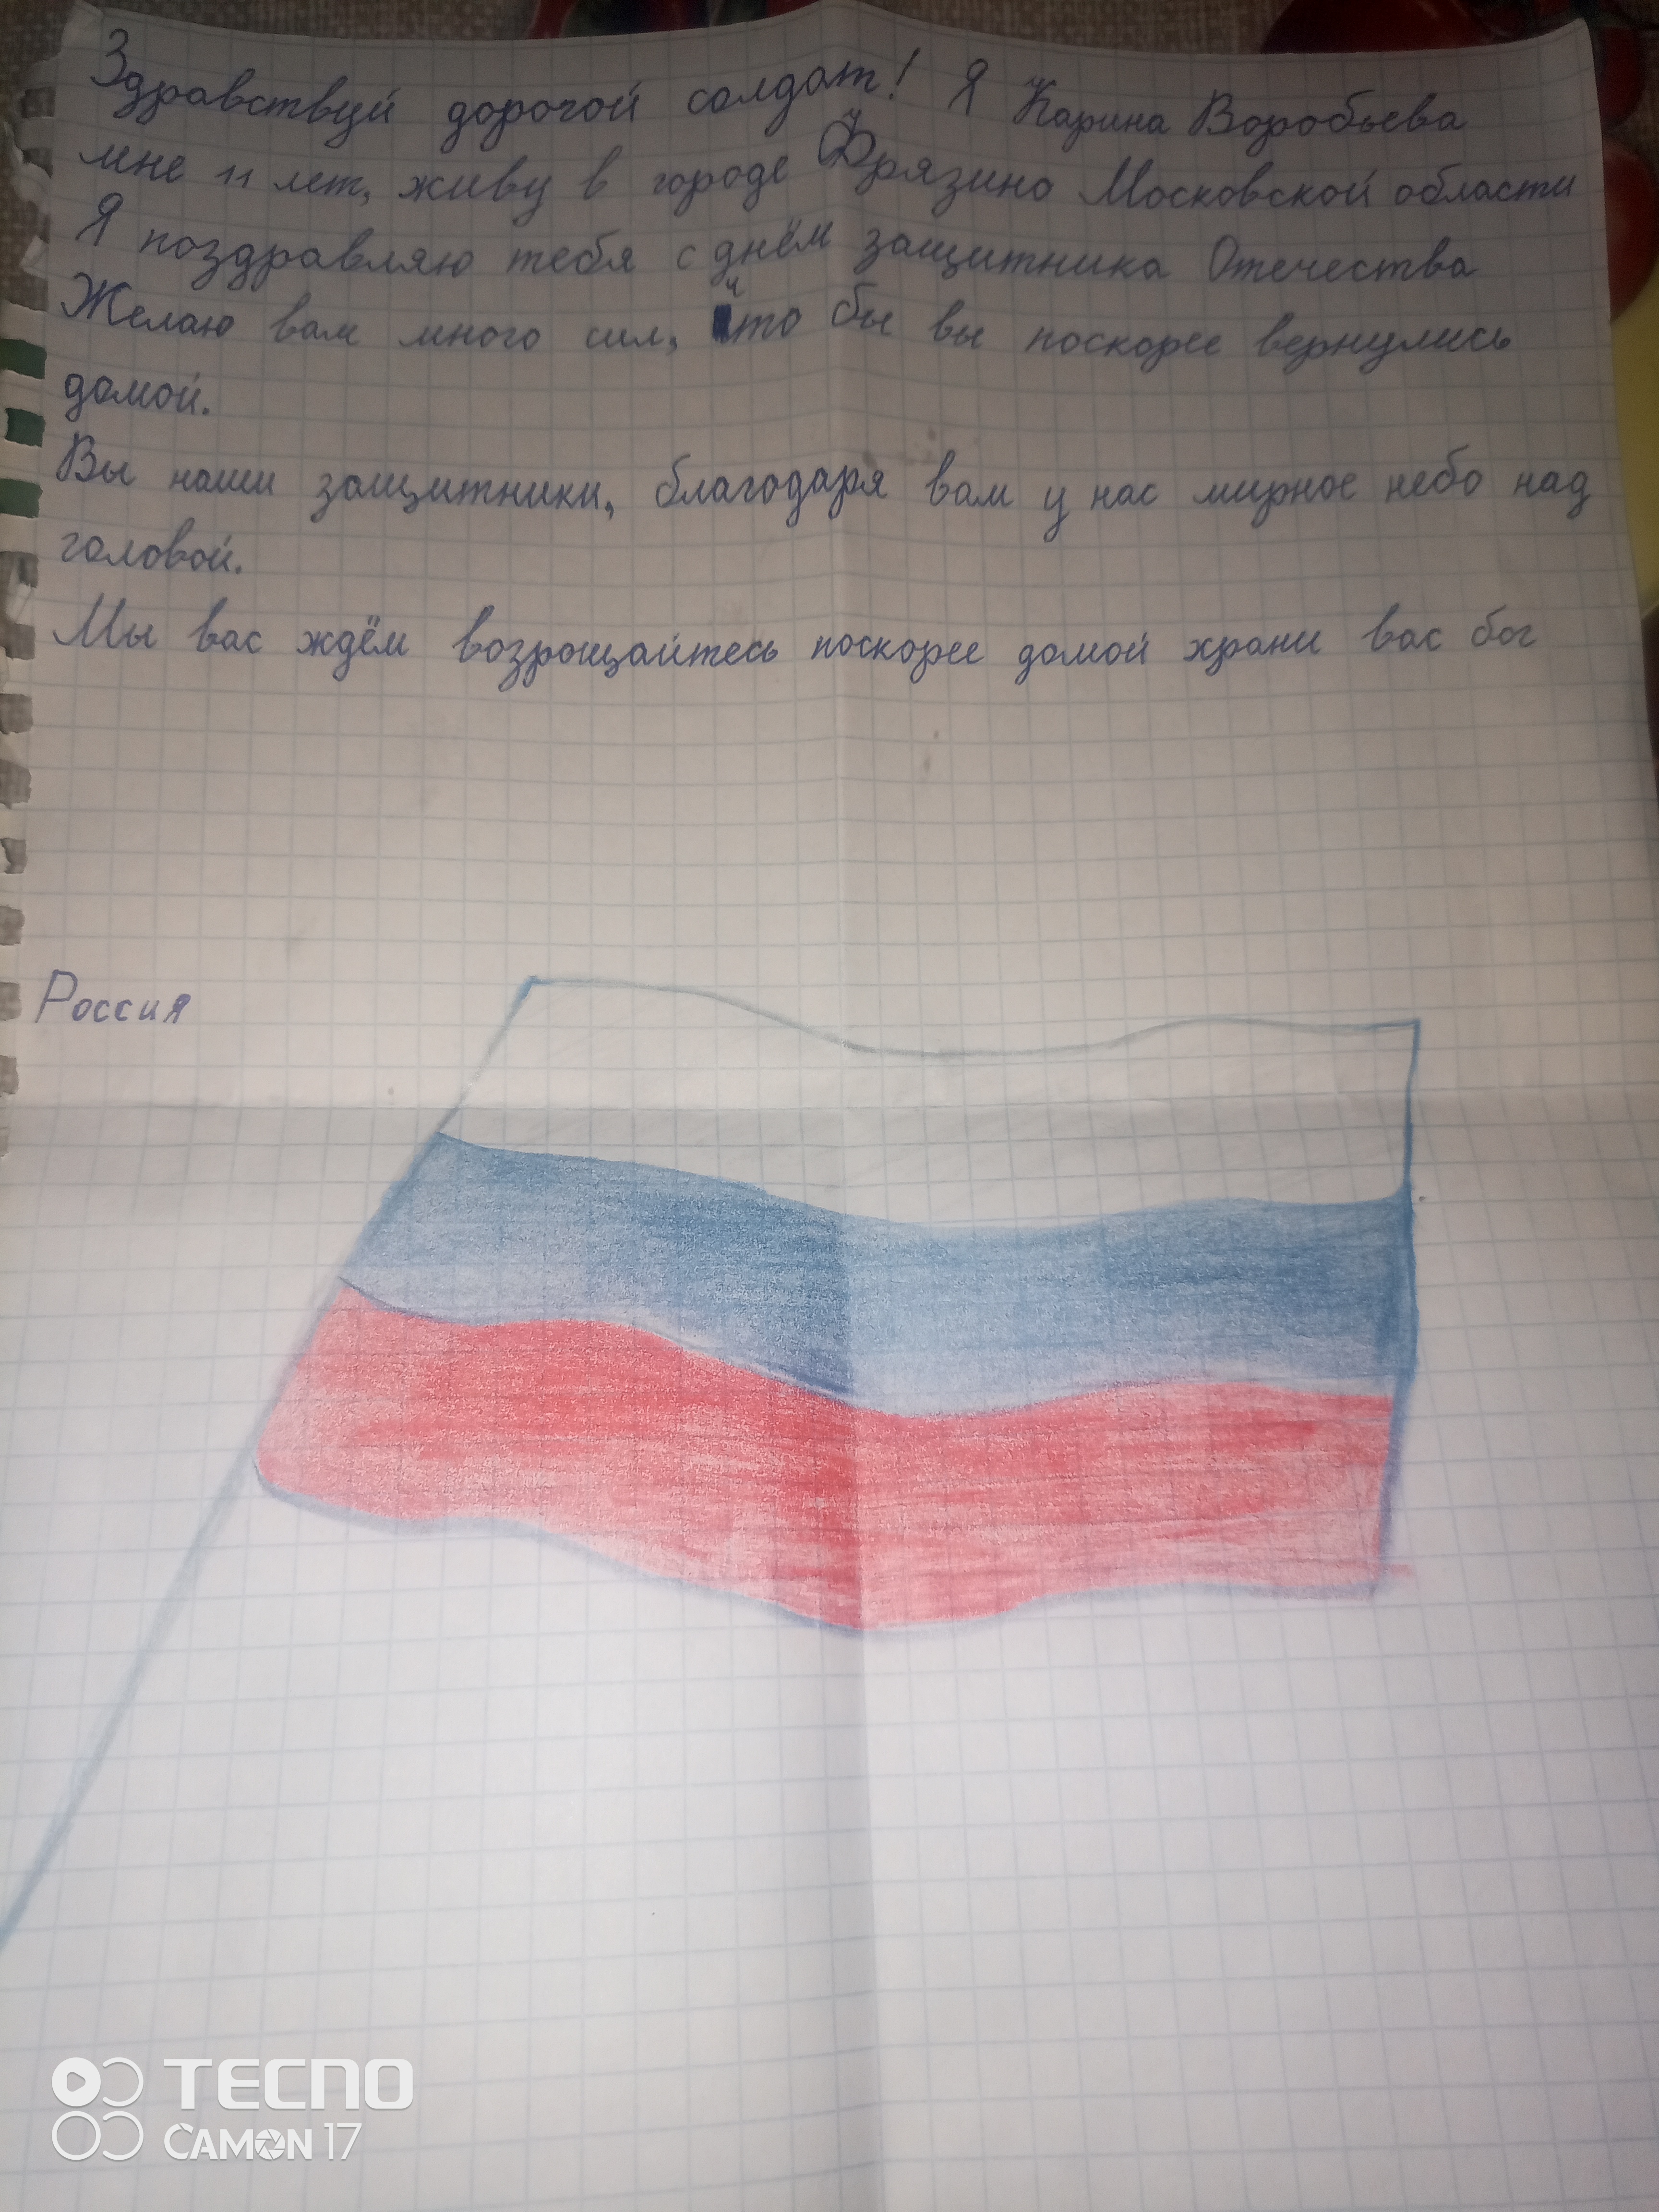 Здравствуй дорогой солдат! Я Карина Воробьева
мне 11 лет, живу в городе Фрязино Московской области
Я поздравляю тебя с днём защитника Отечества
Желаю вам много сил, что бы вы поскорее вернулись
домой.
Вы наши защитники, благодаря вам у нас мирное небо над
головой.
Мы вас ждём возрощайтесь поскорее домой храни вас бог
Россия
TECNO
CAMON 17